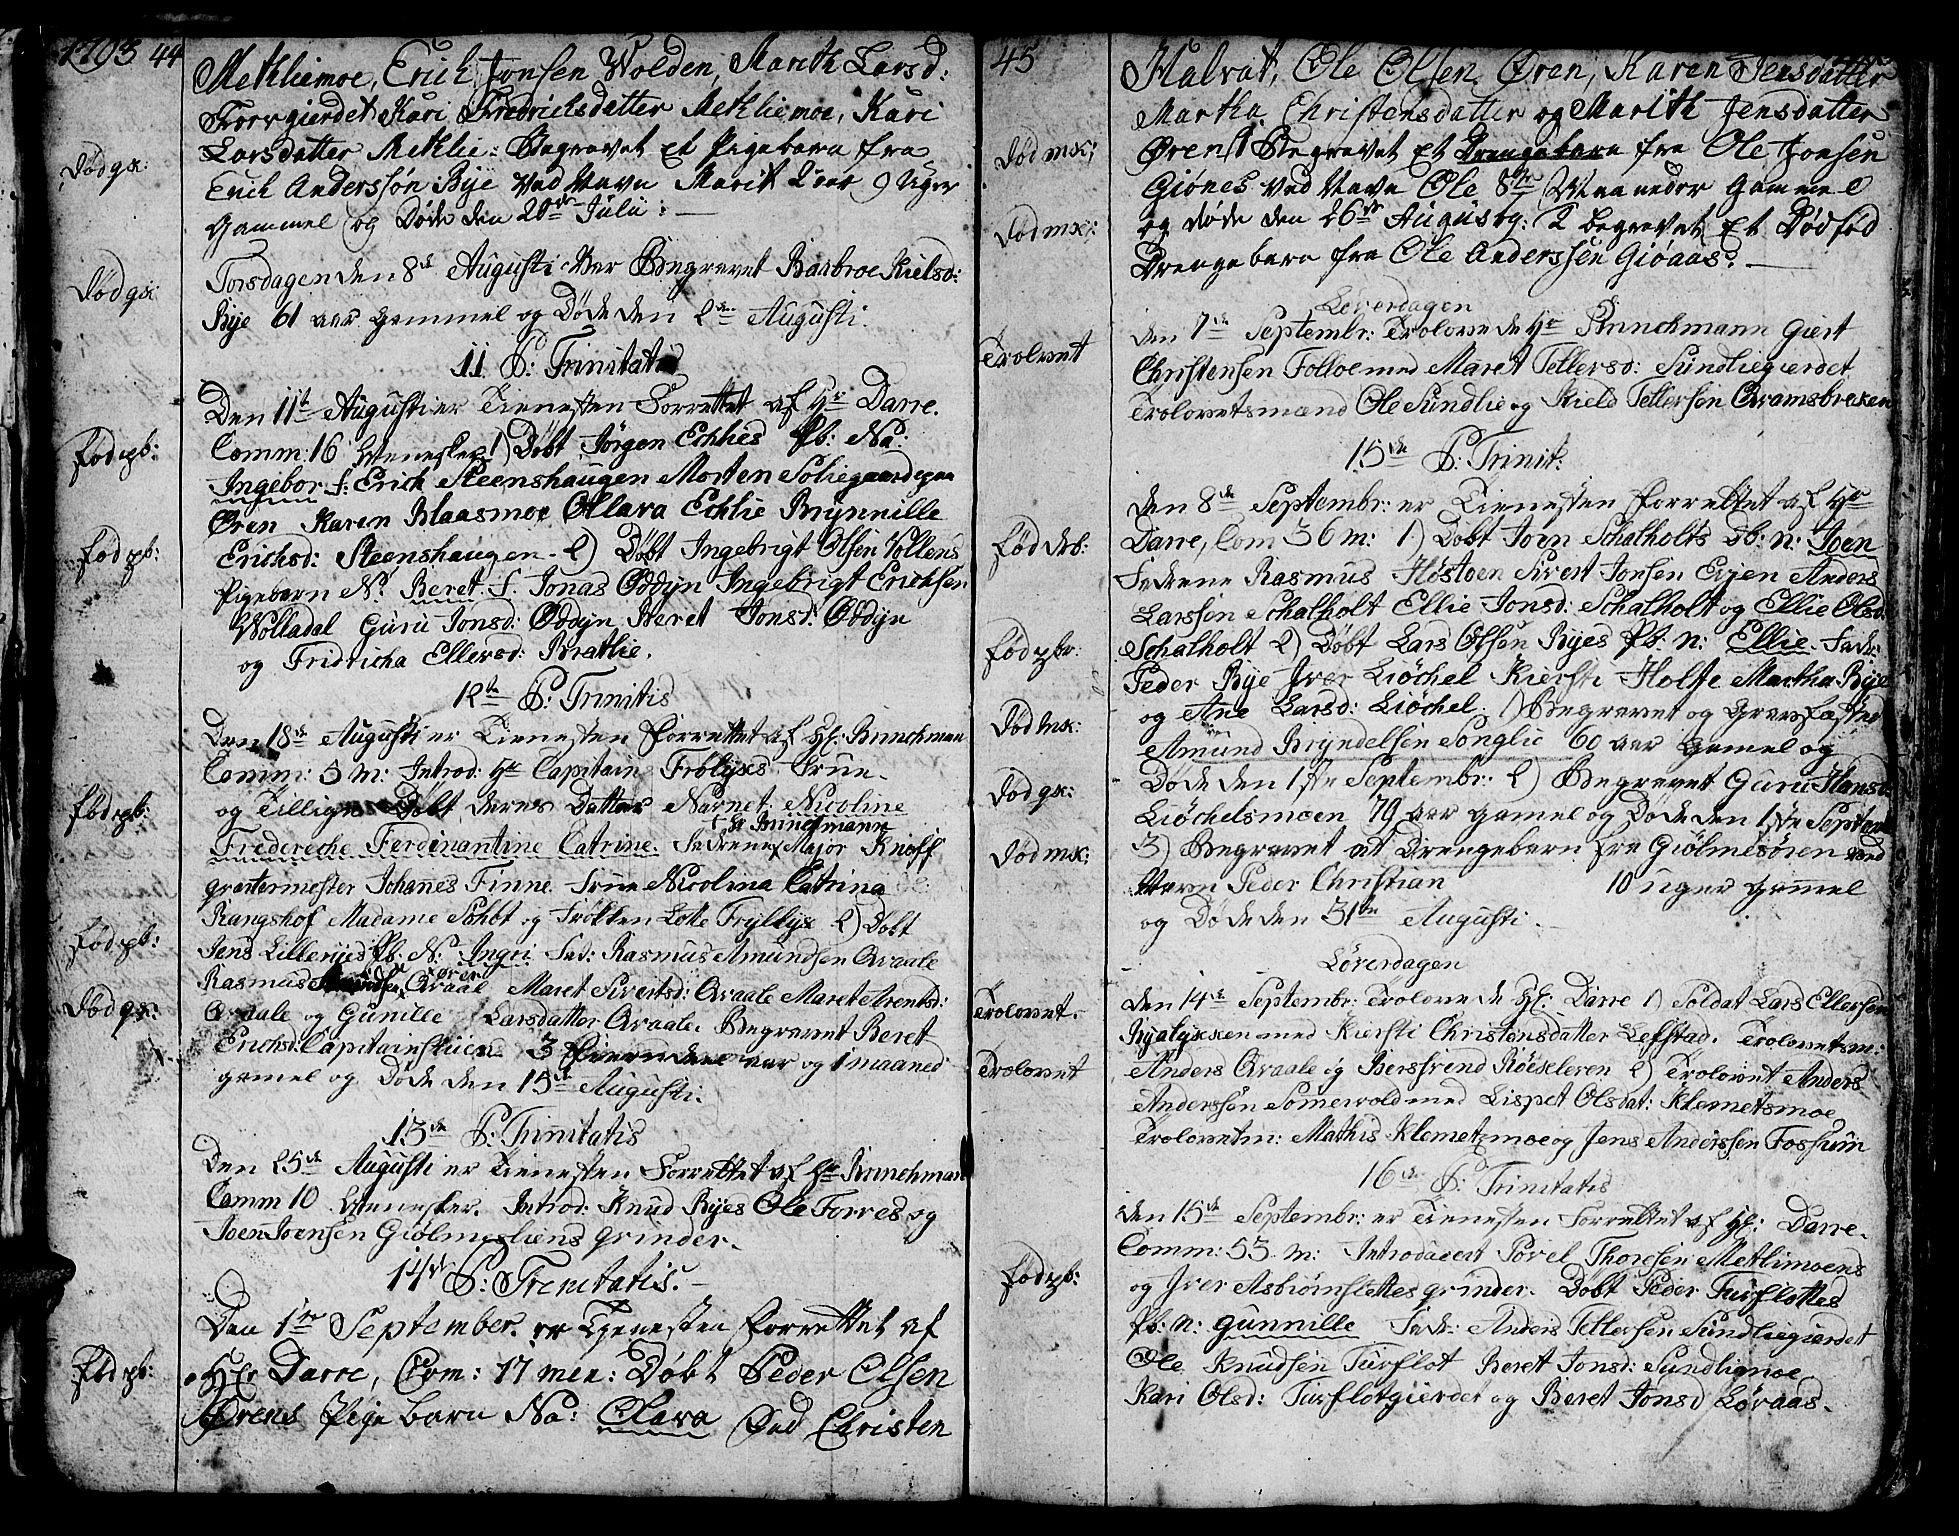 1793 44
Methliemoe, Erich Jonsen Wolden, Marith Larsd:
Torvgierdet Kari Fredrichsdatter Methliemoe, Kari
Larsdatter Methlie: Begravet et Pigebarn fra
Død gk:
Erich Anderssøn Bye ved Navn Marit 2 aar 9 Uger
Gammel og Døde den 20de Julii: —
Død gk:
Torsdagen den 8de Augusti Var Begravet Baarbroe Kielsd:
Bye 61 aar gammel og Døde den 2den Augusti.
11 S: Trinitatis
Den 11te Augusti er Tienesten Forrettet af Hr Darre.
Fød pb:
Comm: 16 Mennesker 1) Døbt Jørgen Echlies Pb: Na:
Ingebor f: Erich Steenshaugen Morten Soliegaardegen
Øren Karen Blaasmoe Ollava Echlie Brynnille
Fød pb:
Erichsd: Steenshaugen - 2) Døbt Ingebrigt Olsen Vollens
Pigebarn N: Beret. f. Jonas Oddyn Ingebrigt Erichsen
Wolladal Guru Jonsd: Oddyn Beret Jonsd: Oddyn
og Fridricha Ellersd: Bratlie.
12te S: Trinitis
Den 18de Augusti er Tienesten Forrettet af Hr: Brinchman
Comm: 5 m: Introd: Hr Capitain Frølyxs Frue
Fød pb:
og Tillige Døbt deres Datter Navnet: Nicoline
† Hr Brinchmann
Fredereche Ferdinantine Catrine. Fadrene × Major Knoff
qvartermester Johanes Finne Frue Nicolina Catrina
Rangshof Madame Sohbt og Frøkken Lotte Fryllyx 2) Døbt
Fød pb:
Jens Lilleryes Pb. N: Ingri. Fad: Rasmus Amundsen Qvaale
Rasmus Qvaal Maret Sivertsd: Qvaale Maret Arentsd:
Død gk:
Qvaale og Gunille Larsdatter Qvaale. Begravet Beret
Erichsd: Capitainstuen 3 Fierendeel aar og 1 maaned
gamel og Døde den 15de Augusti.
13de S: Trinitatis
Den 25de Augusti er Tienesten Forrettet af Hr Brinchman
Comm 10 Mennesker. Introd: Knud Byes Ole Torres og
Joen Joensen Giølmesliens qvinder.
14de S: Trenitatis. —
Den 1te September. er Tjenesten forrettet af
Fød pb:
Hr Darre, Com: 17 men: Døbt Peder Olsen
Ørens Pige barn Na: Clara Fad Christen
45
Halvat, Ole Olsen Øren, Karen Jensdatter
Martha Christensdatter og Marith Jensdatter
Død mk:
Øren 1 Begravet et Drengebarn fra Ole Jonsen
Giønes ved Navn Ole 8te Maaneder Gammel
Død mk:
og døde den 26de August. 2 begravet et Dødfød
Drengebarn fra Ole Anderssen Giøaas. —
Løverdagen
Trolovet
den 7de Septembr: Trolovede Hr Brinchmann Giert
Christensen Folloe med Maret Tellersd: Sundliegierdet
Trolovetsmænd Ole Sundlie og Kield Tellersen Qvamsbrecken
15de S: Trinit:
Den 8de Septembr: er Tienesten forrettet af Hr
Fød Drb:
Darre, Com 36 m: 1) Døbt Joen Schalholts Db: n: Joen
Fadrene Rasmus Høstoen Sivert Jonsen Evjen Anders
Larssen Schalholt Ellie Jonsd: Schalholt og Ellie Olsd:
Fød pbr:
Schalholt 2) Døbt Lars Olsen Byes Pb: n: Ellie. Fadr:
Peder Bye Iver Liøchel Kiersti Holte Martha Bye
Død mk:
og Ane Larsd: Liøchel. 1) Begravet og Gravfæsted
Amund Bryndelsen Songlie 60 aar gamel og
Død gk:
Døde den 1ste Septembr: 2) Begravet Guru Hansd:
Liøchelsmoen 79 aar gamel og Døde den 1ste Septem
Død mk:
3) Begravet et Drengebarn fra Giølmesøien ved
Navn Peder Christian 10 uger gamel
og Døde den 31te Augusti.
Løverdagen
Trolovet.
den 14de Septembr: Trolovede Hr: Darre 1) Soldat Lars Ellersen
Ryalyxen med Kiersti Christensdatter Lefstad. Trolovetsm:
Trolovet
Anders Qvaale og Bersvend Røeseleren 2) Trolovet Anders
Anderssen Somervold med Lispet Olsdat: Klemetsmoe
Trolovetm: Mathis Klemetzmoe og Jens Anderssen Fossum
16de S: Trinitatis
den 15de Septembr: er Tienesten Forrettet af Hr: Darre.
Comm: 53. m: Introduceret Povel Thoresen Metlimoens
Fød pb:
og Iver Asbiørnslettes qvinder. Døbt Peder Turflottes
Pb: n: Gunnille Fadr: Anders Tellersen Sundliegierdet
Ole Knudsen Turflot Beret Jonsd: Sundliemoe
Kari Olsd: Turflotgierdet og Beret Jonsd Løraas.